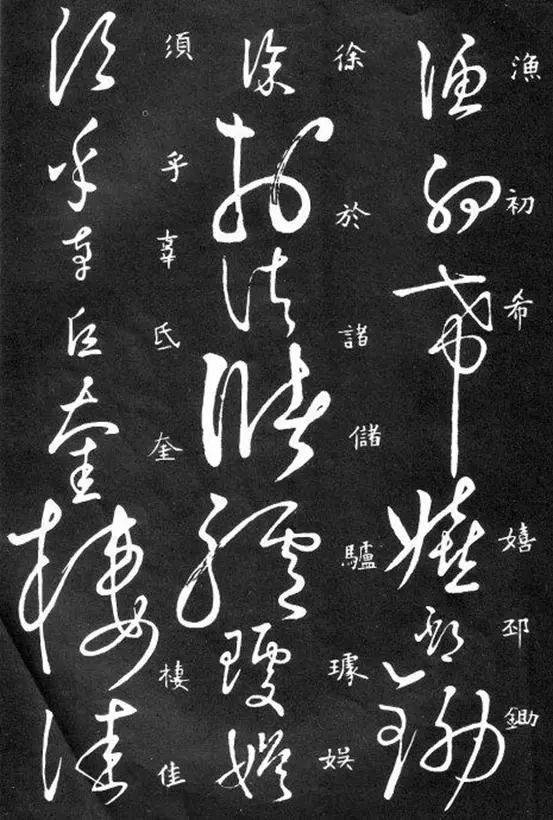 漁初希嬉邳鋤
徐於諸儲驢璩娛
須乎辜氐奎棲佳